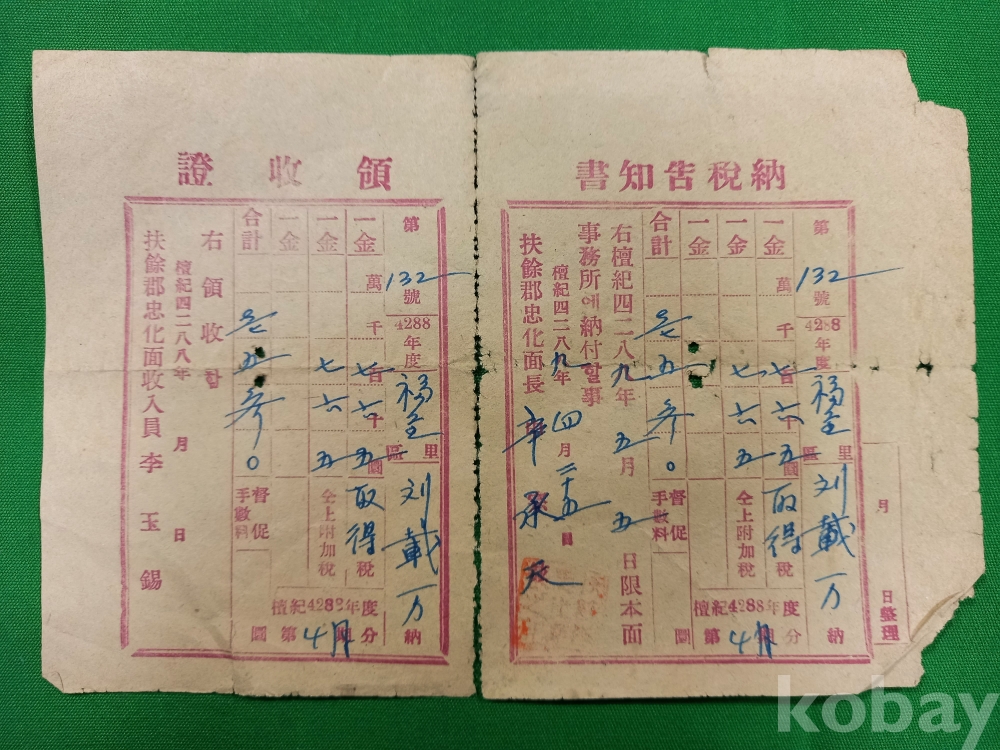 納稅告知書
第132號
4288年度
福金里區
刘載万納
一金萬千七百六十五圜取得稅
一金七六五仝上附加稅
一金
合計五參〇督促手數料
檀紀4288年度第4月分
右檀紀四二八九年五月五日限本面
事務所에納付할事
檀紀四二八九年四月二十五日
扶餘郡忠化面長
月日整理
領收證
第132號
4288年度
福金里區
刘載万納
一金萬千七百六十五圜取得稅
一金七六五仝上附加稅
一金
合計五參〇督促手數料
檀紀4288年度第4月分
右領收함
檀紀四二八八年月日
扶餘郡忠化面收入員李玉錫
kobay